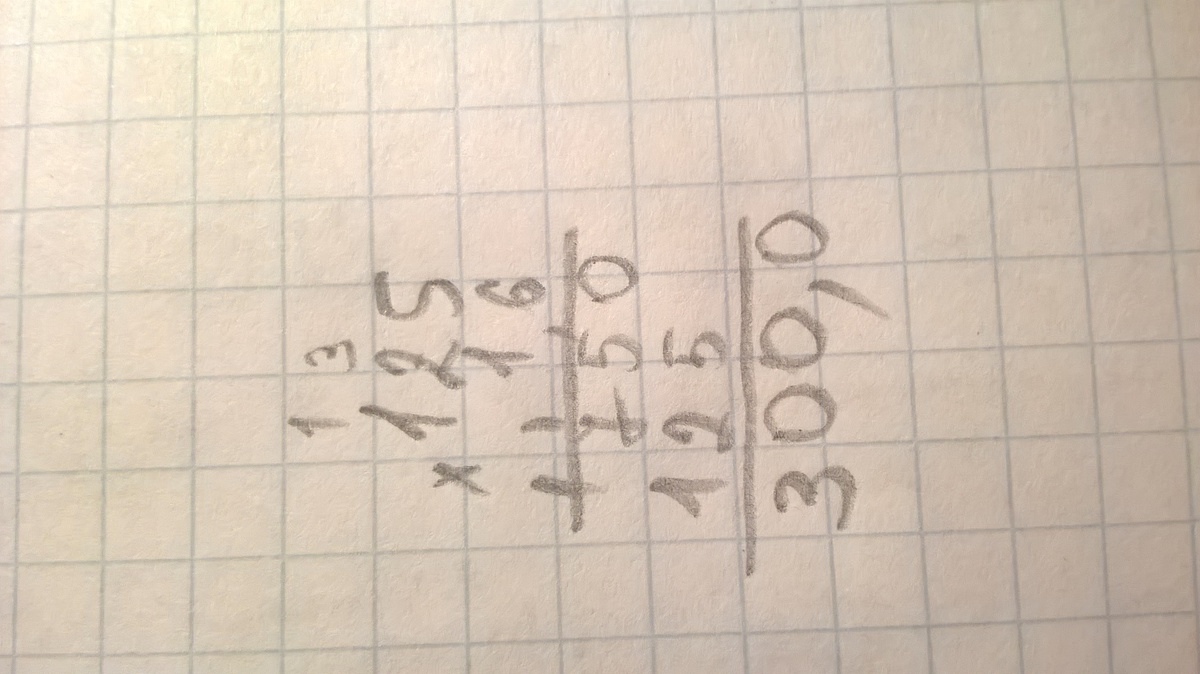 1 3
125
x 1,6
1 1
750
125
300,0